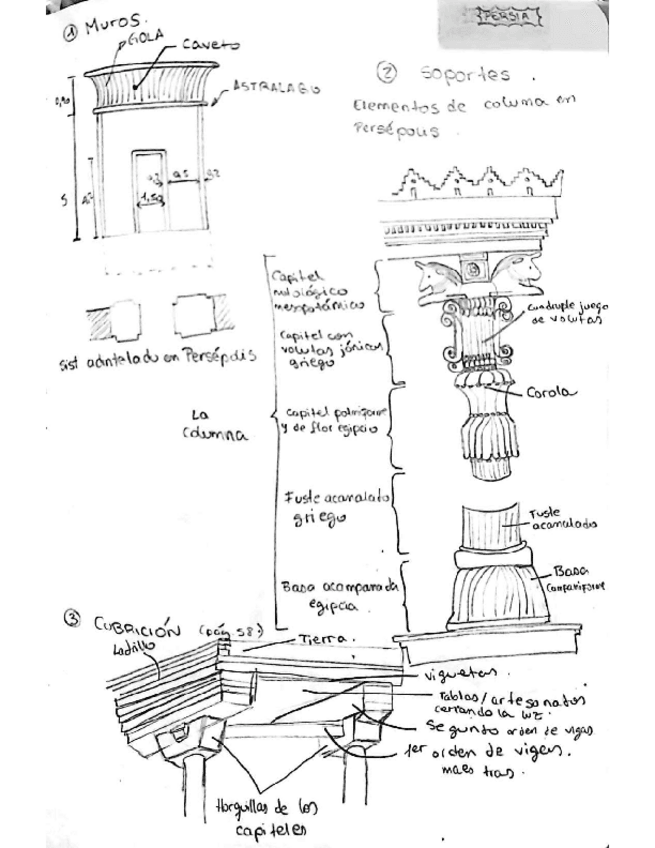 PERSIA
① Muros.
GOLA
caveto
ASTRALAGO
0,90
5
1,50
sist adintelado en Persépolis
② Soportes.
Elementos de columna en
Persépolis.
La
columna
Capitel
mitológico
mesopotámico
Capitel con
volutas jónicas
griego
Capitel palmiforme
y de flor egipcio
Fuste acanalado
griego
Basa acampanada
egipcia
cuadruple juego
de volutas
Corola
Fuste
acanalado
Basa
Campaniforme
③ CUBRICIÓN (pág 58)
Ladrillo
Tierra.
viguetas.
Tablas/artesonados
cerrando la luz.
Segundo orden de vigas
1er orden de vigas.
maestras.
Horquillas de los
capiteles